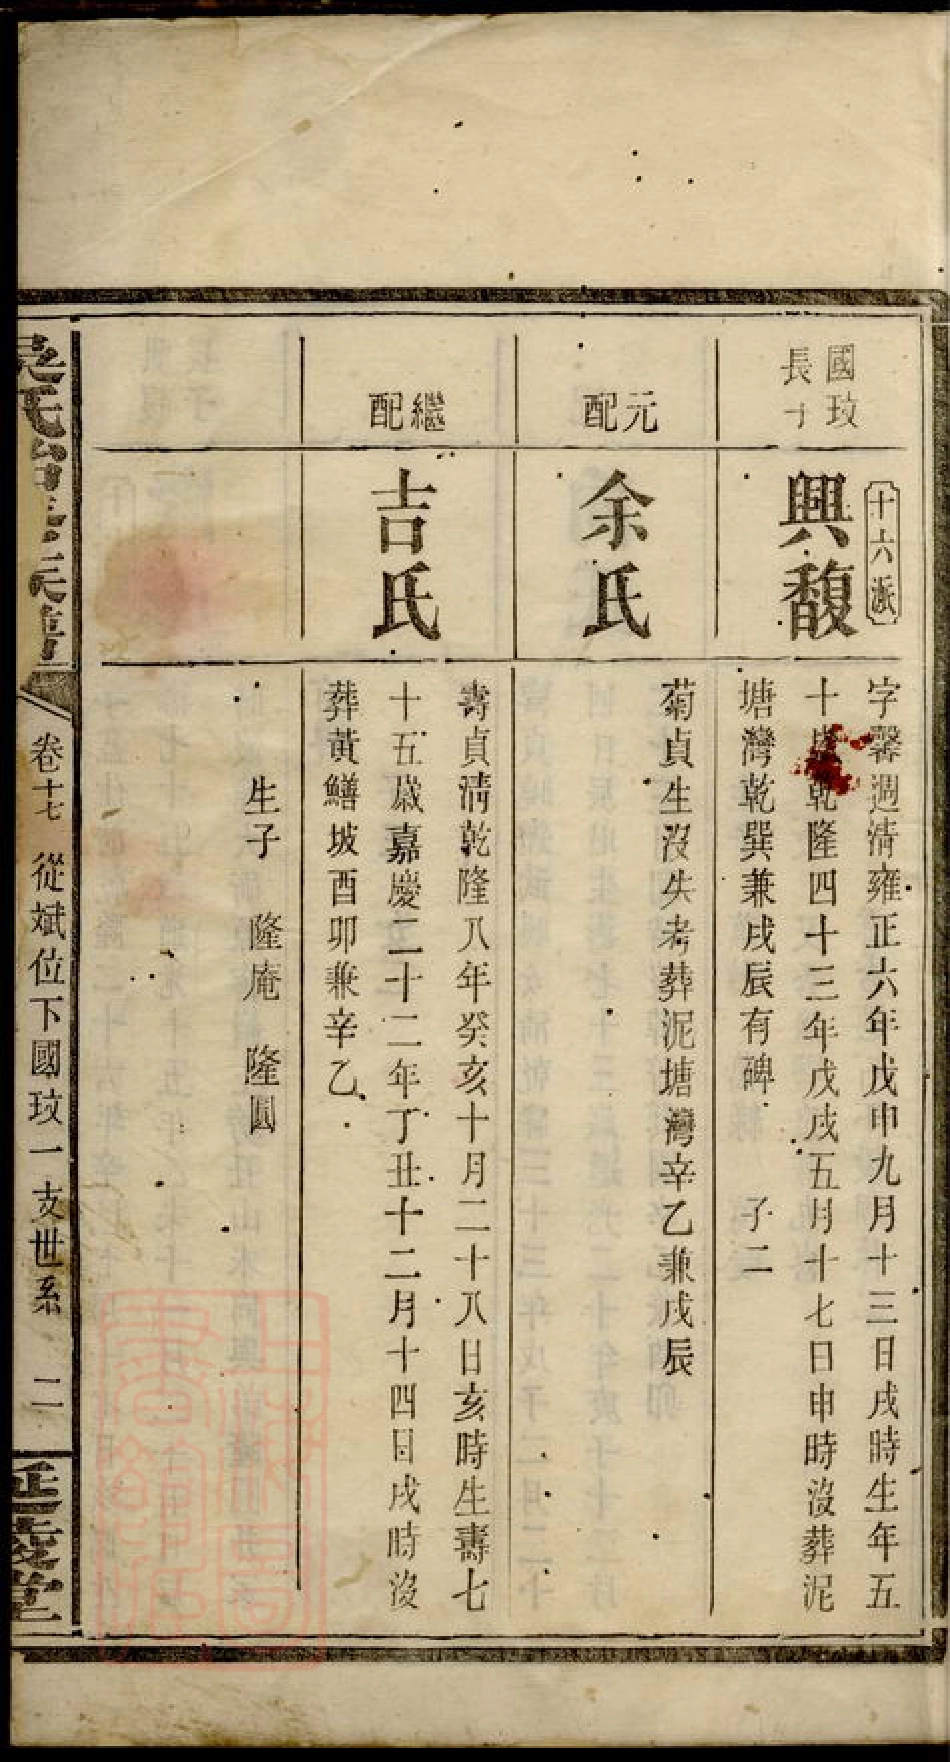 國玟
長子
十六派
興馥
字馨週清雍正六年戊申九月十三日戌時生年五
十歲乾隆四十三年戊戌五月十七日申時沒葬泥
塘灣乾巽兼戌辰有碑 子二
元配
余氏
菊貞生沒失考葬泥塘灣辛乙兼戌辰
繼配
吉氏
壽貞清乾隆八年癸亥十月二十八日亥時生壽七
十五歲嘉慶二十二年丁丑十二月十四日戌時沒
葬黃鱔坡酉卯兼辛乙
生子 隆庵 隆圓
卷十七 從斌位下國玟一支世系 二